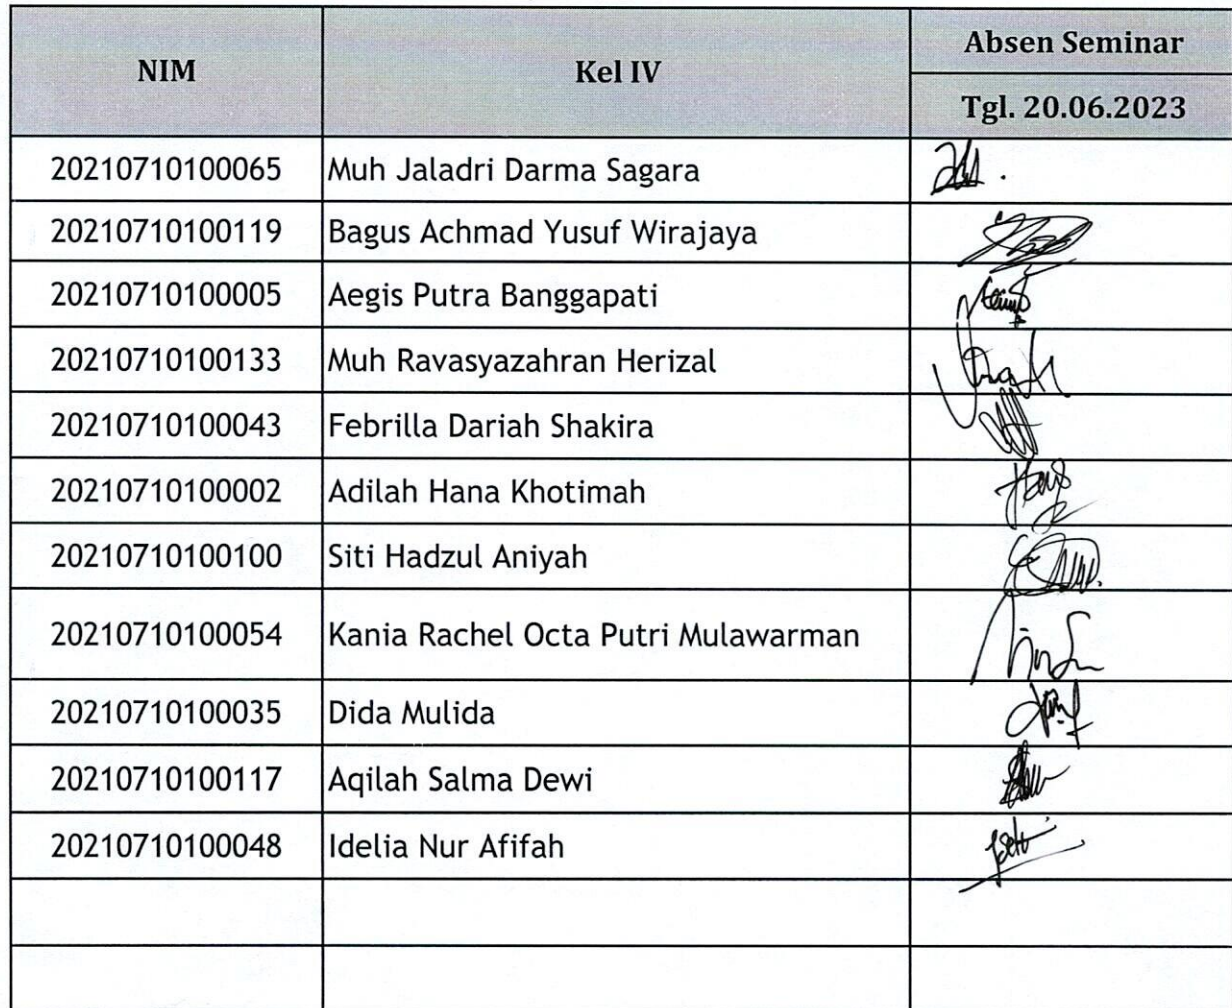 NIM Kel IV Absen Seminar
Tgl. 20.06.2023
20210710100065 Muh Jaladri Darma Sagara
20210710100119 Bagus Achmad Yusuf Wirajaya
20210710100005 Aegis Putra Banggapati
20210710100133 Muh Ravasyazahran Herizal
20210710100043 Febrilla Dariah Shakira
20210710100002 Adilah Hana Khotimah
20210710100100 Siti Hadzul Aniyah
20210710100054 Kania Rachel Octa Putri Mulawarman
20210710100035 Dida Mulida
20210710100117 Aqilah Salma Dewi
20210710100048 Idelia Nur Afifah